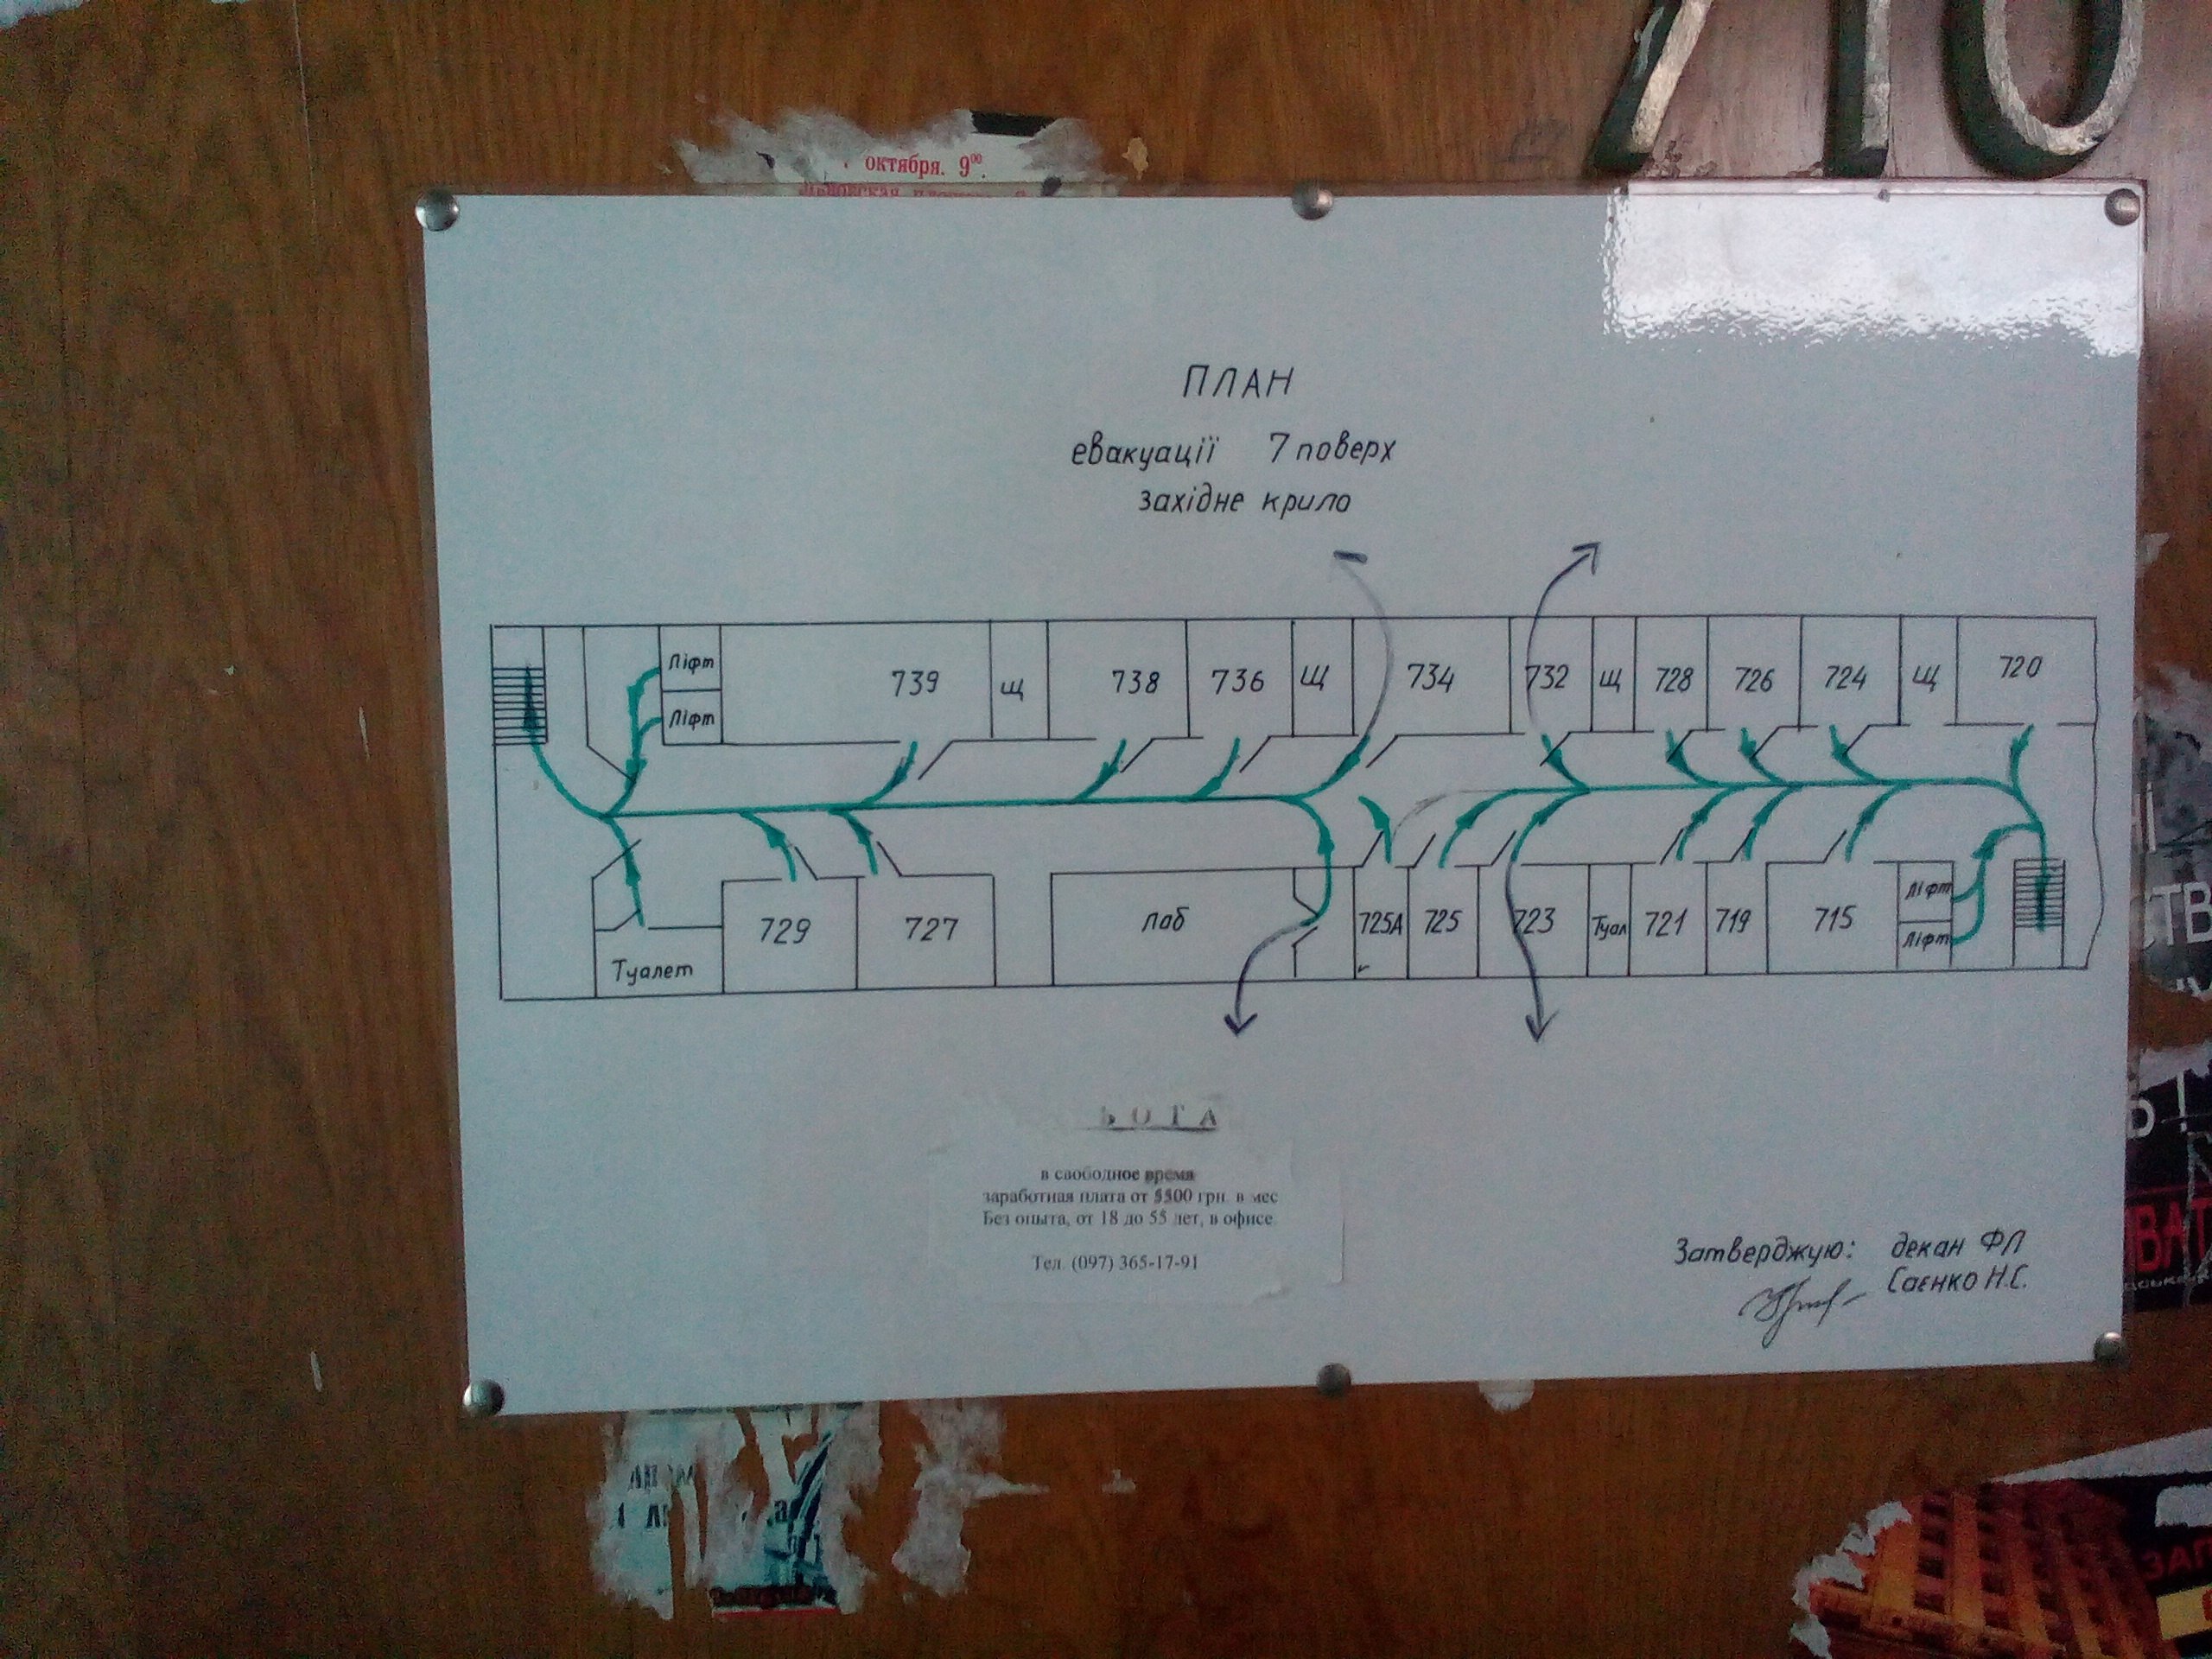 710
октября. 9⁰⁰.
ПЛАН
евакуації 7 поверх
західне крило
Ліфт
Ліфт
739
Щ
738
736
Щ
734
732
Щ
728
726
724
Щ
720
Туалет
729
727
Лаб
725А
725
723
Туал
721
719
715
Ліфт
Ліфт
БОТА
в свободное время
заработная плата от 5500 грн. в мес
Без опыта, от 18 до 55 лет, в офисе
Тел. (097) 365-17-91
Затверджую: декан ФЛ
Саєнко Н.С.